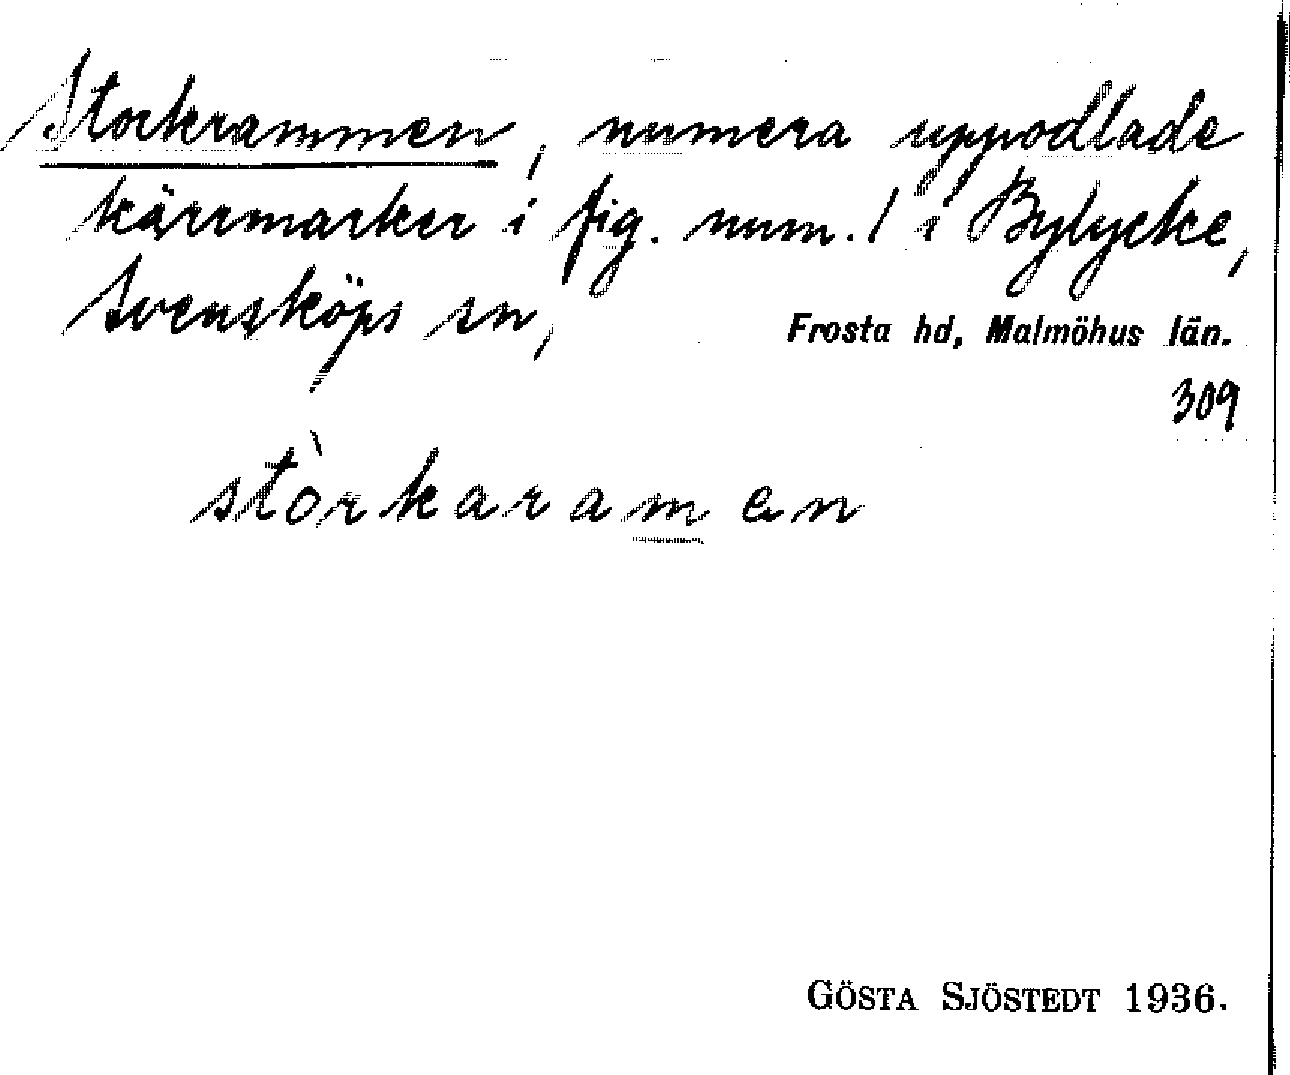 Storkrammen, numera uppodlade
kärrmarker i fig. num. 1 i Bylycke,
Svensköps sn, Frosta hd, Malmöhus län.
309
stòrkaramen
GÖSTA SJÖSTEDT 1936.